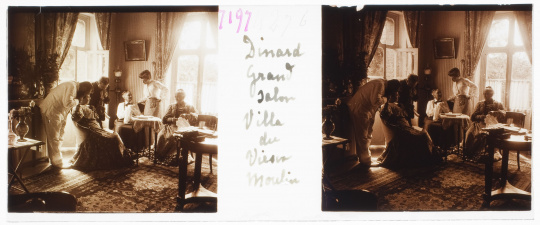 7197
Dinard
Grand
Salon
Villa
du
Vieux
Moulin